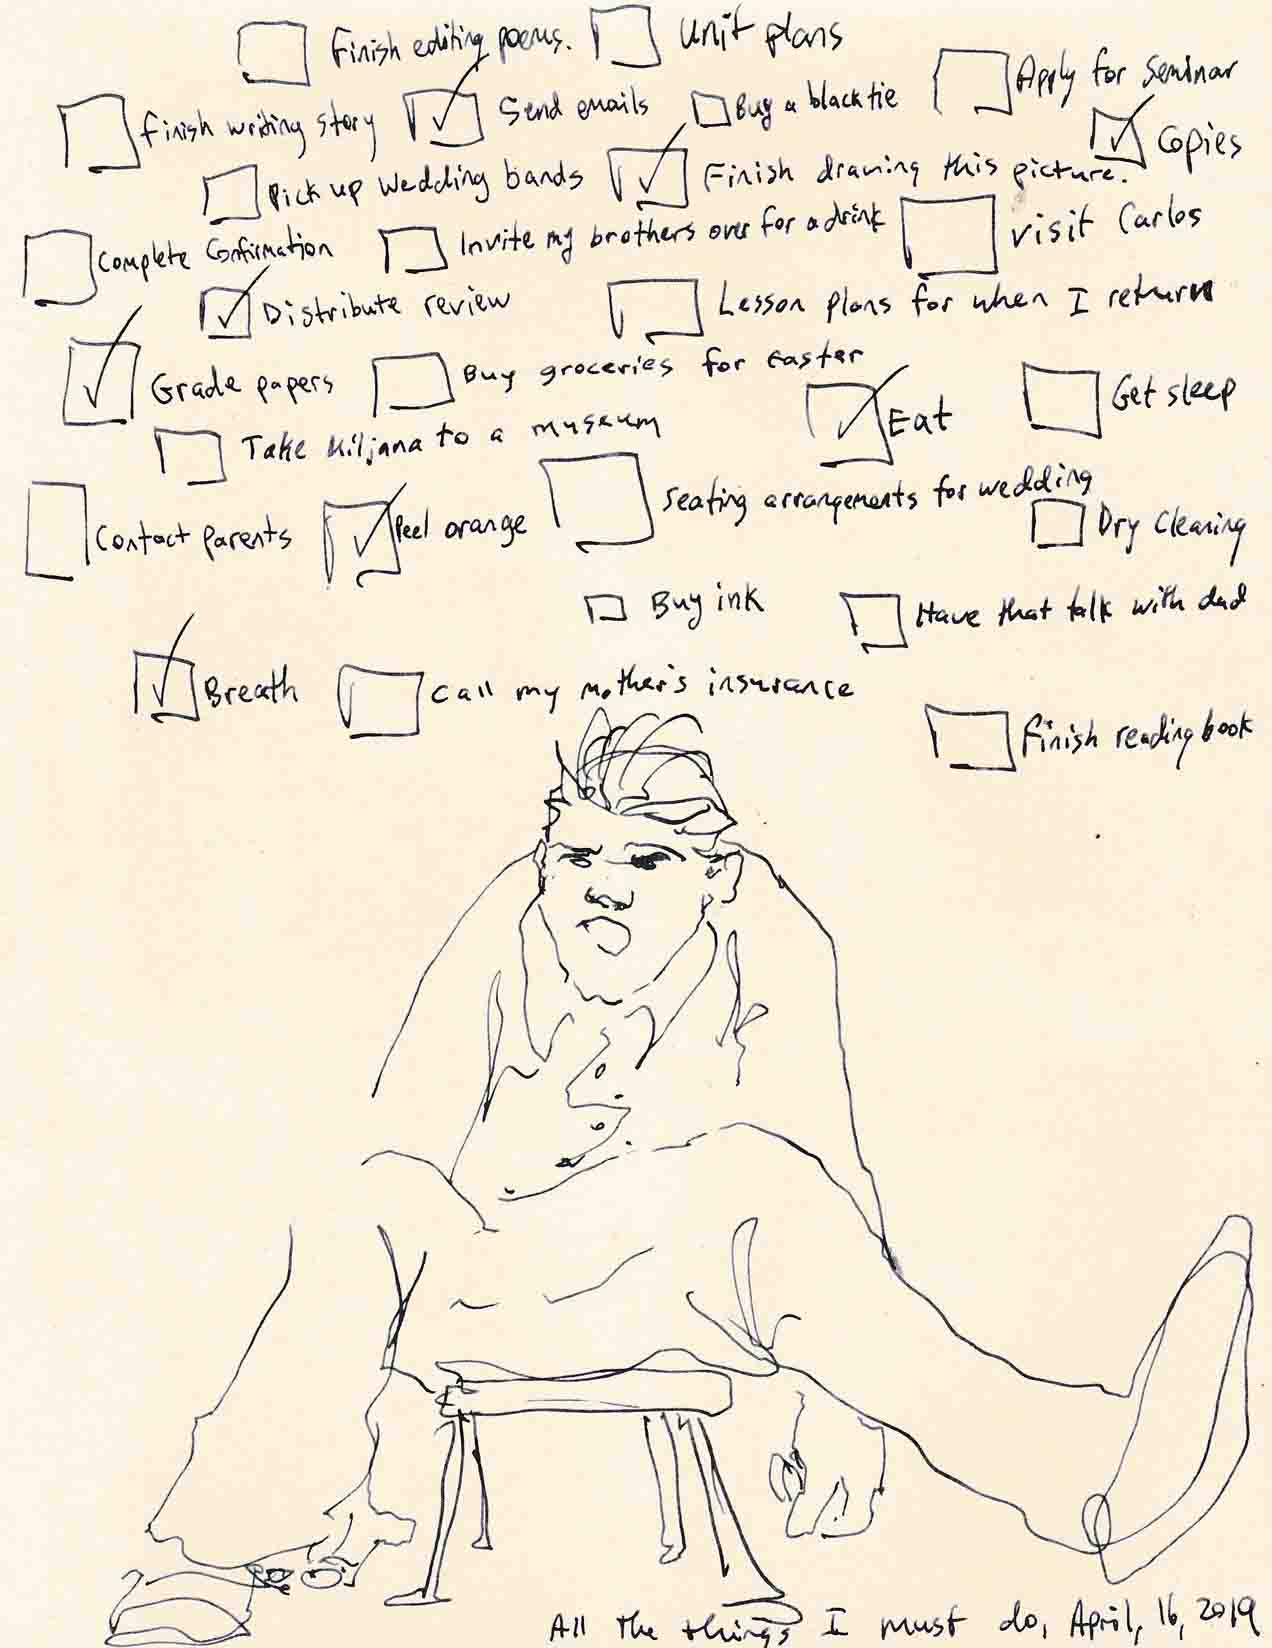 Finish editing poems.
Unit plans
Apply for Seminar
Finish writing story
Send emails
Buy a black tie
Copies
Pick up wedding bands
Finish drawing this picture.
Complete Confirmation
Invite my brothers over for a drink
visit Carlos
Distribute review
Lesson plans for when I return
Grade papers
Buy groceries for Easter
Eat
Get sleep
Take Kiljana to a museum
Contact parents
Peel orange
Seating arrangements for wedding
Dry Cleaning
Buy ink
Have that talk with dad
Breath
Call my mother's insurance
Finish reading book
All the things I must do, April, 16, 2019